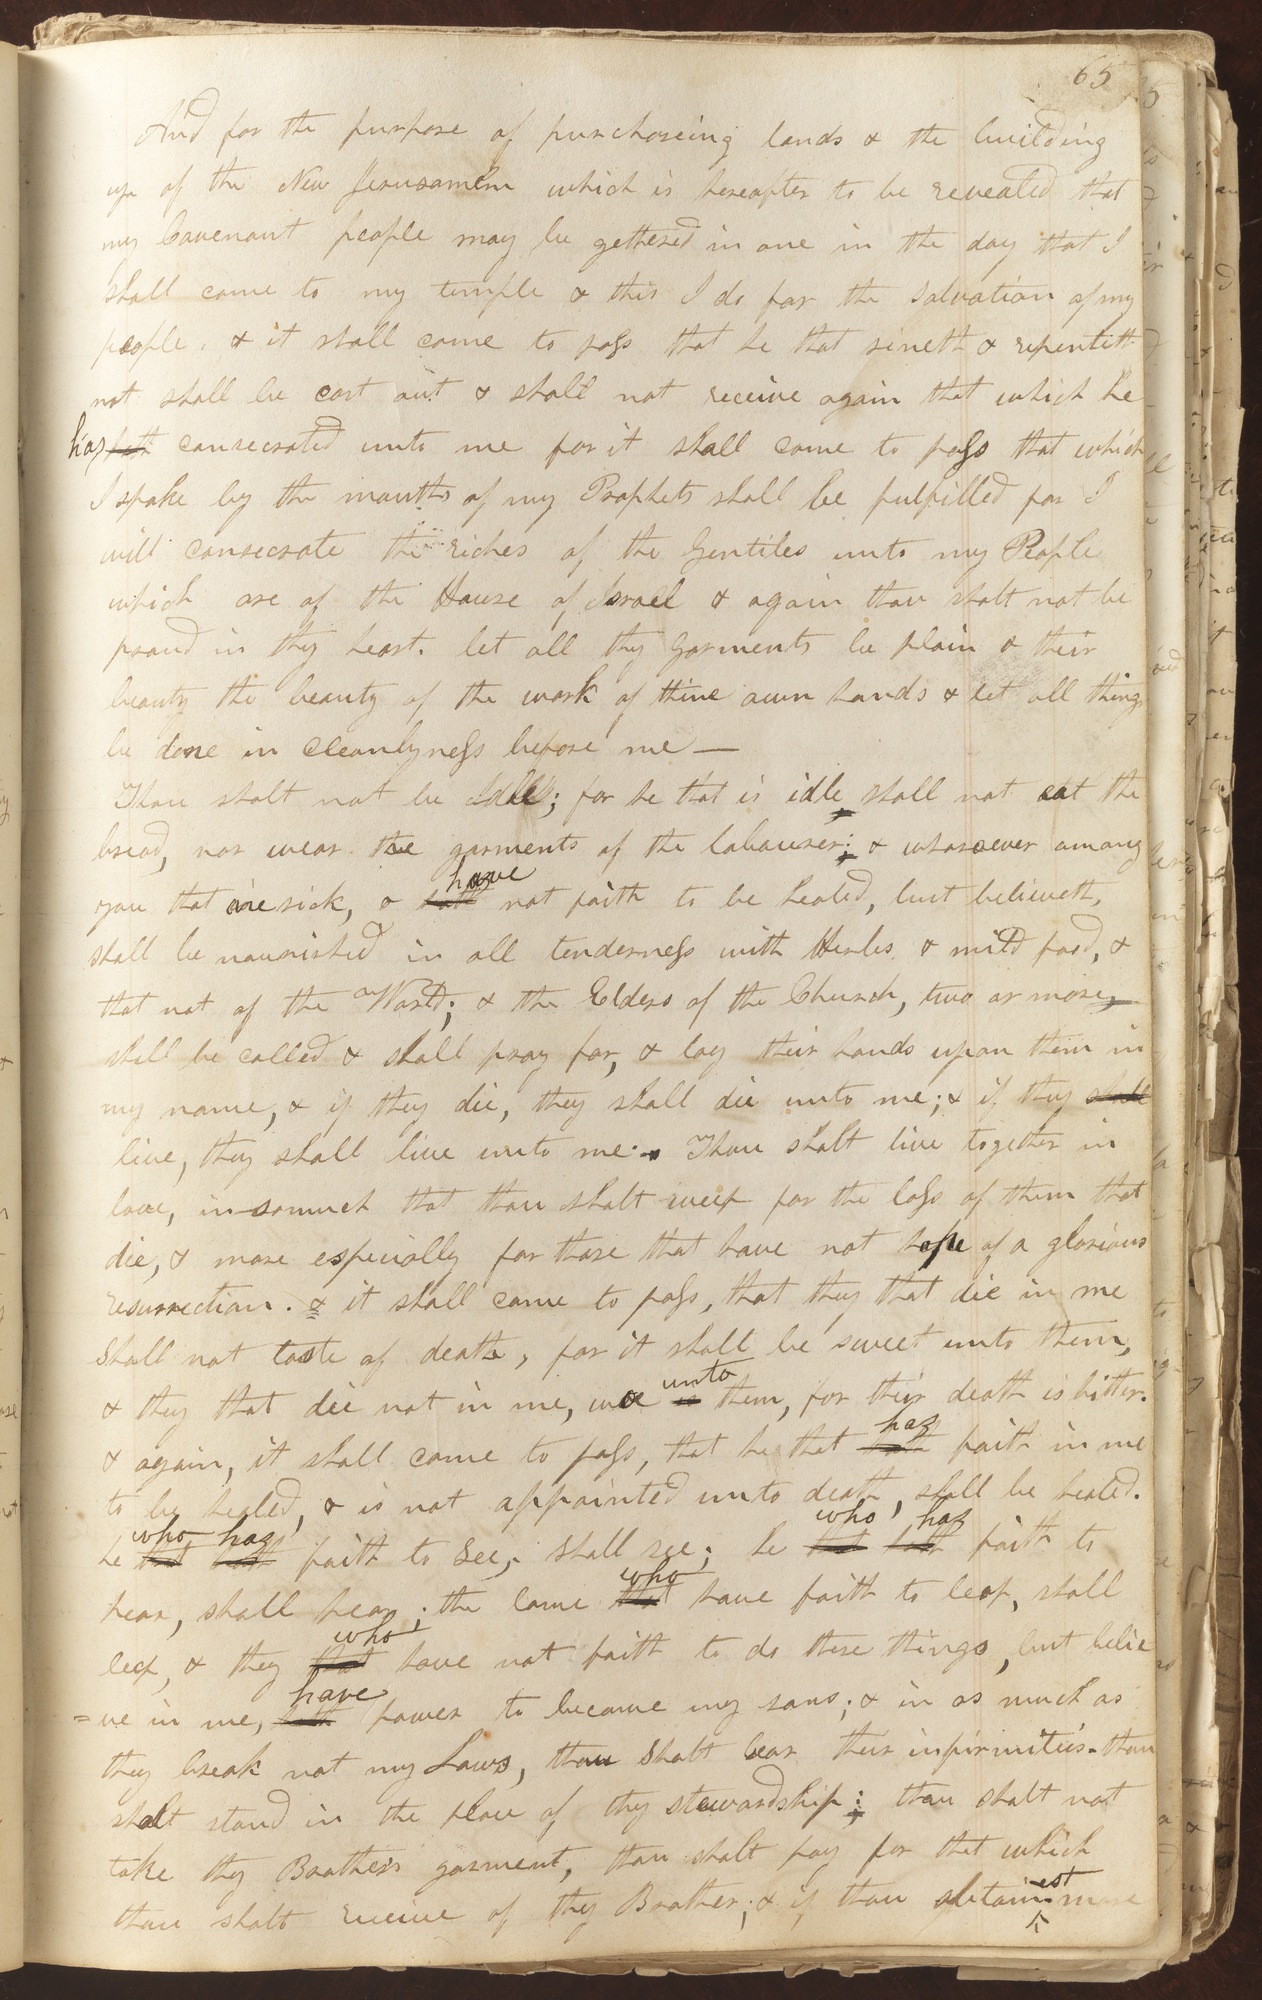 65
And for the purpose of purchaseing lands & the building
up of the New Jerusamem which is hereafter to be revealed that
my Covenant people may be gethered in one in the day that I
shall come to my temple & this I do for the salvation of my
people. & it shall come to pass that he that sineth & repentith
not shall be cast out & shall not receive again that which he
has hath consecrated unto me for it shall come to pass that which
I spake by the mouths of my Prophets shall be fulfilled for I
will consecrate the riches of the Gentiles unto my People
which are of the House of Israel & again thou shalt not be
proud in thy heart. let all thy Garments be plain & their
beauty the beauty of the work of thine own hands & let all things
be done in cleanlyness before me —
Thou shalt not be Idle; for he that is idle shall not eat the
bread, nor wear the garments of the labourer; & whosoever among
have
you that are sick, & hath not faith to be healed, but believeth,
shall be nourished in all tenderness with Herbs & mild food, &
that not of the World; & the Elders of the Church, two or more,
shall be called & shall pray for, & lay their hands upon them in
my name, & if they die, they shall die unto me; & if they shall
live, they shall live unto me. Thou shalt live together in
love, in-somuch that thou shalt weep for the loss of them that
die, & more especially for those that have not hope of a glorious
resurrection. & it shall come to pass, that they that die in me
shall not taste of death, for it shall be sweet unto them,
unto
& they that die not in me, woe is them, for their death is bitter.
has
& again, it shall come to pass, that he that hath faith in me
to be healed, & is not appointed unto death, shall be healed.
who has who has
he that hath faith to see, shall see; he that hath faith to
who
hear, shall hear; the lame that have faith to leap, shall
who
leap, & they that have not faith to do these things, but belie
have
=ve in me, hath power to become my sons; & in as much as
they break not my Laws, thou shalt bear their infirmities. thou
shalt stand in the place of thy stewardship; thou shalt not
take thy Brothers garment, thou shalt pay for that which
est
thou shalt receive of thy Brother; & if thou obtain more